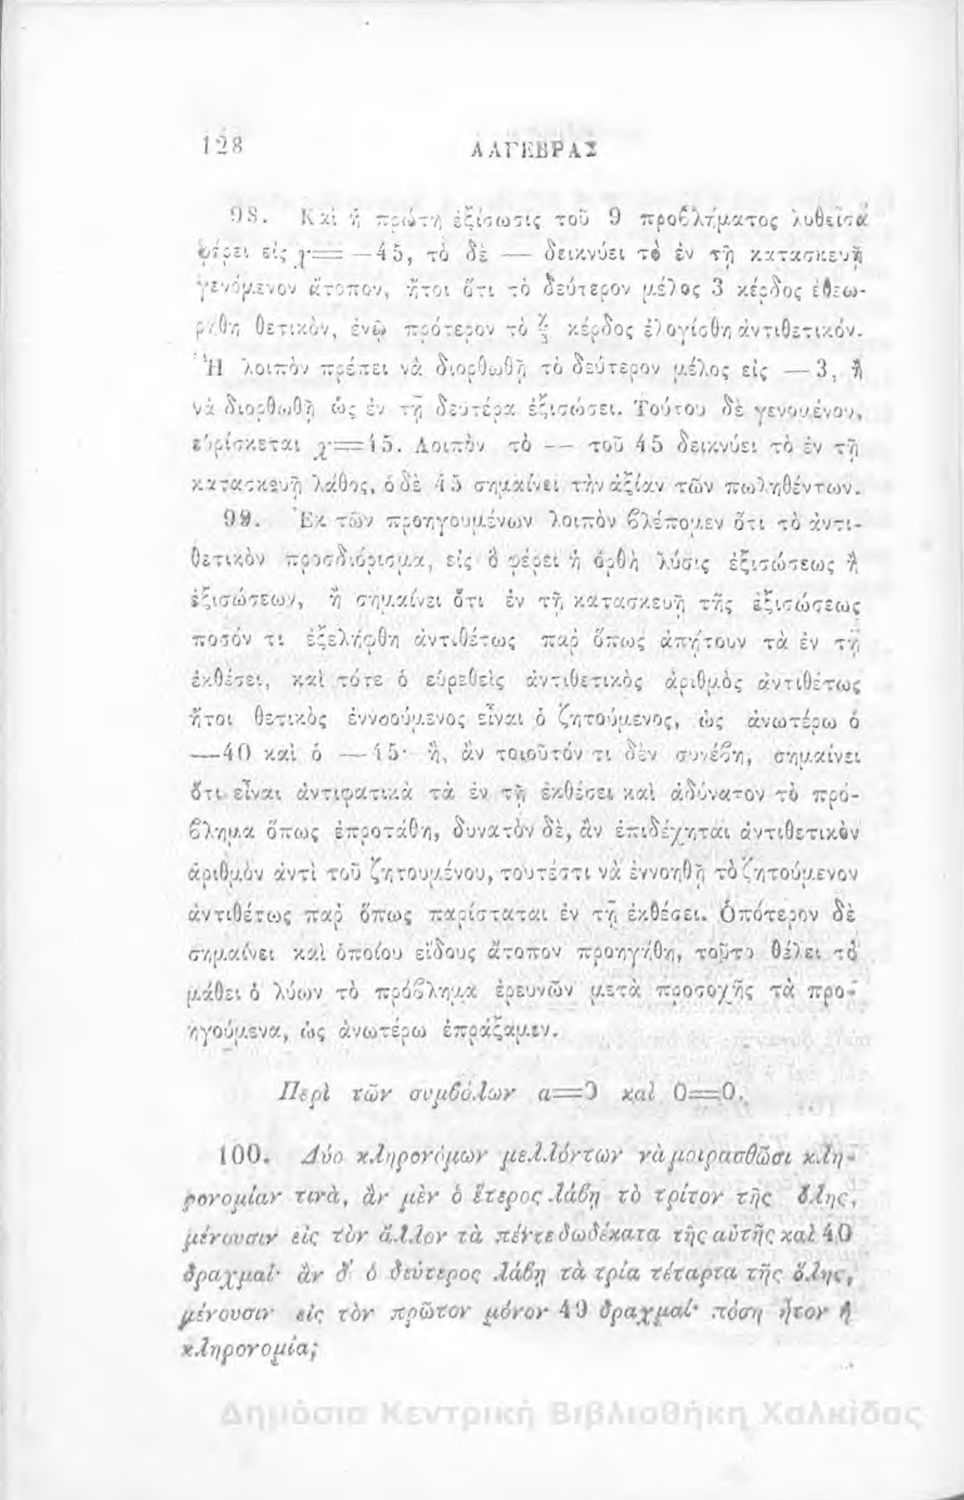 128
ΑΛΓΕΒΡΑΣ
98. Καὶ ἡ πρώτη ἐξίσωσις τοῦ 9 προβλήματος λυθεῖσα
φέρει εἰς χ=—45, τὸ δὲ — δεικνύει τὸ ἐν τῇ κατασκευῇ
γενόμενον ἄτοπον, ἤτοι ὅτι τὸ δεύτερον μέλος 3 κέρδος ἐθεω-
ρήθη θετικὸν, ἐνῷ πρότερον τὸ κέρδος ἐλογίσθη ἀντιθετικόν.
Ἢ λοιπὸν πρέπει νὰ διορθωθῇ τὸ δεύτερον μέλος εἰς —3, ἢ
νὰ διορθωθῇ ὡς ἐν τῇ δευτέρᾳ ἐξισώσει. Τούτου δὲ γενομένου,
εὑρίσκεται χ=45. Λοιπὸν τὸ — τοῦ 45 δεικνύει τὸ ἐν τῇ
κατασκευῇ λάθος, ὁ δὲ 45 σημαίνει τὴν ἀξίαν τῶν πωληθέντων.
99. Ἐκ τῶν προηγουμένων λοιπὸν βλέπομεν ὅτι τὸ ἀντι-
θετικὸν προσδιόρισμα, εἰς ὃ φέρει ἡ ὀρθὴ λύσις ἐξισώσεως ἢ
ἐξισώσεων, ἢ σημαίνει ὅτι ἐν τῇ κατασκευῇ τῆς ἐξισώσεως
ποσόν τι ἐξελήφθη ἀντιθέτως παρ ὅπως ἀπῄτουν τὰ ἐν τῇ
ἐκθέσει, καὶ τότε ὁ εὑρεθεὶς ἀντιθετικὸς ἀριθμὸς ἀντιθέτως
ἤτοι θετικὸς ἐννοούμενος εἶναι ὁ ζητούμενος, ὡς ἀνωτέρω ὁ
—40 καὶ ὁ —45· ἢ, ἂν τοιοῦτόν τι δὲν συνέβη, σημαίνει
ὅτι εἶναι ἀντιφατικὰ τὰ ἐν τῇ ἐκθέσει καὶ ἀδύνατον τὸ πρό-
βλημα ὅπως ἐπροτάθη, δυνατὸν δὲ, ἂν ἐπιδέχηται ἀντιθετικὸν
ἀριθμὸν ἀντὶ τοῦ ζητουμένου, τουτέστι νὰ ἐννοηθῇ τὸ ζητούμενον
ἀντιθέτως παρ ὅπως παρίσταται ἐν τῇ ἐκθέσει. Ὁπότερον δὲ
σημαίνει καὶ ὁποίου εἴδους ἄτοπον προηγήθη, τοῦτο θέλει τὸ
μάθει ὁ λύων τὸ πρόβλημα ἐρευνῶν μετὰ προσοχῆς τὰ προ-
ηγούμενα, ὡς ἀνωτέρω ἐπράξαμεν.
Περὶ τῶν συμβόλων α=0 καὶ 0=0.
100. Δύο κληρονόμων μελλόντων νὰ μοιρασθῶσι κλη-
ρονομίαν τινὰ, ἂν μὲν ὁ ἕτερος λάβῃ τὸ τρίτον τῆς ὅλης,
μένουσιν εἰς τὸν ἄλλον τὰ πέντε δωδέκατα τῆς αὐτῆς καὶ 40
δραχμαί· ἂν δ' ὁ δεύτερος λάβῃ τὰ τρία τέταρτα τῆς ὅλης,
μένουσιν εἰς τὸν πρῶτον μόνον 40 δραχμαί· πόση ἦτον ἡ
κληρονομία;
Δημόσια Κεντρική Βιβλιοθήκη Χαλκίδας